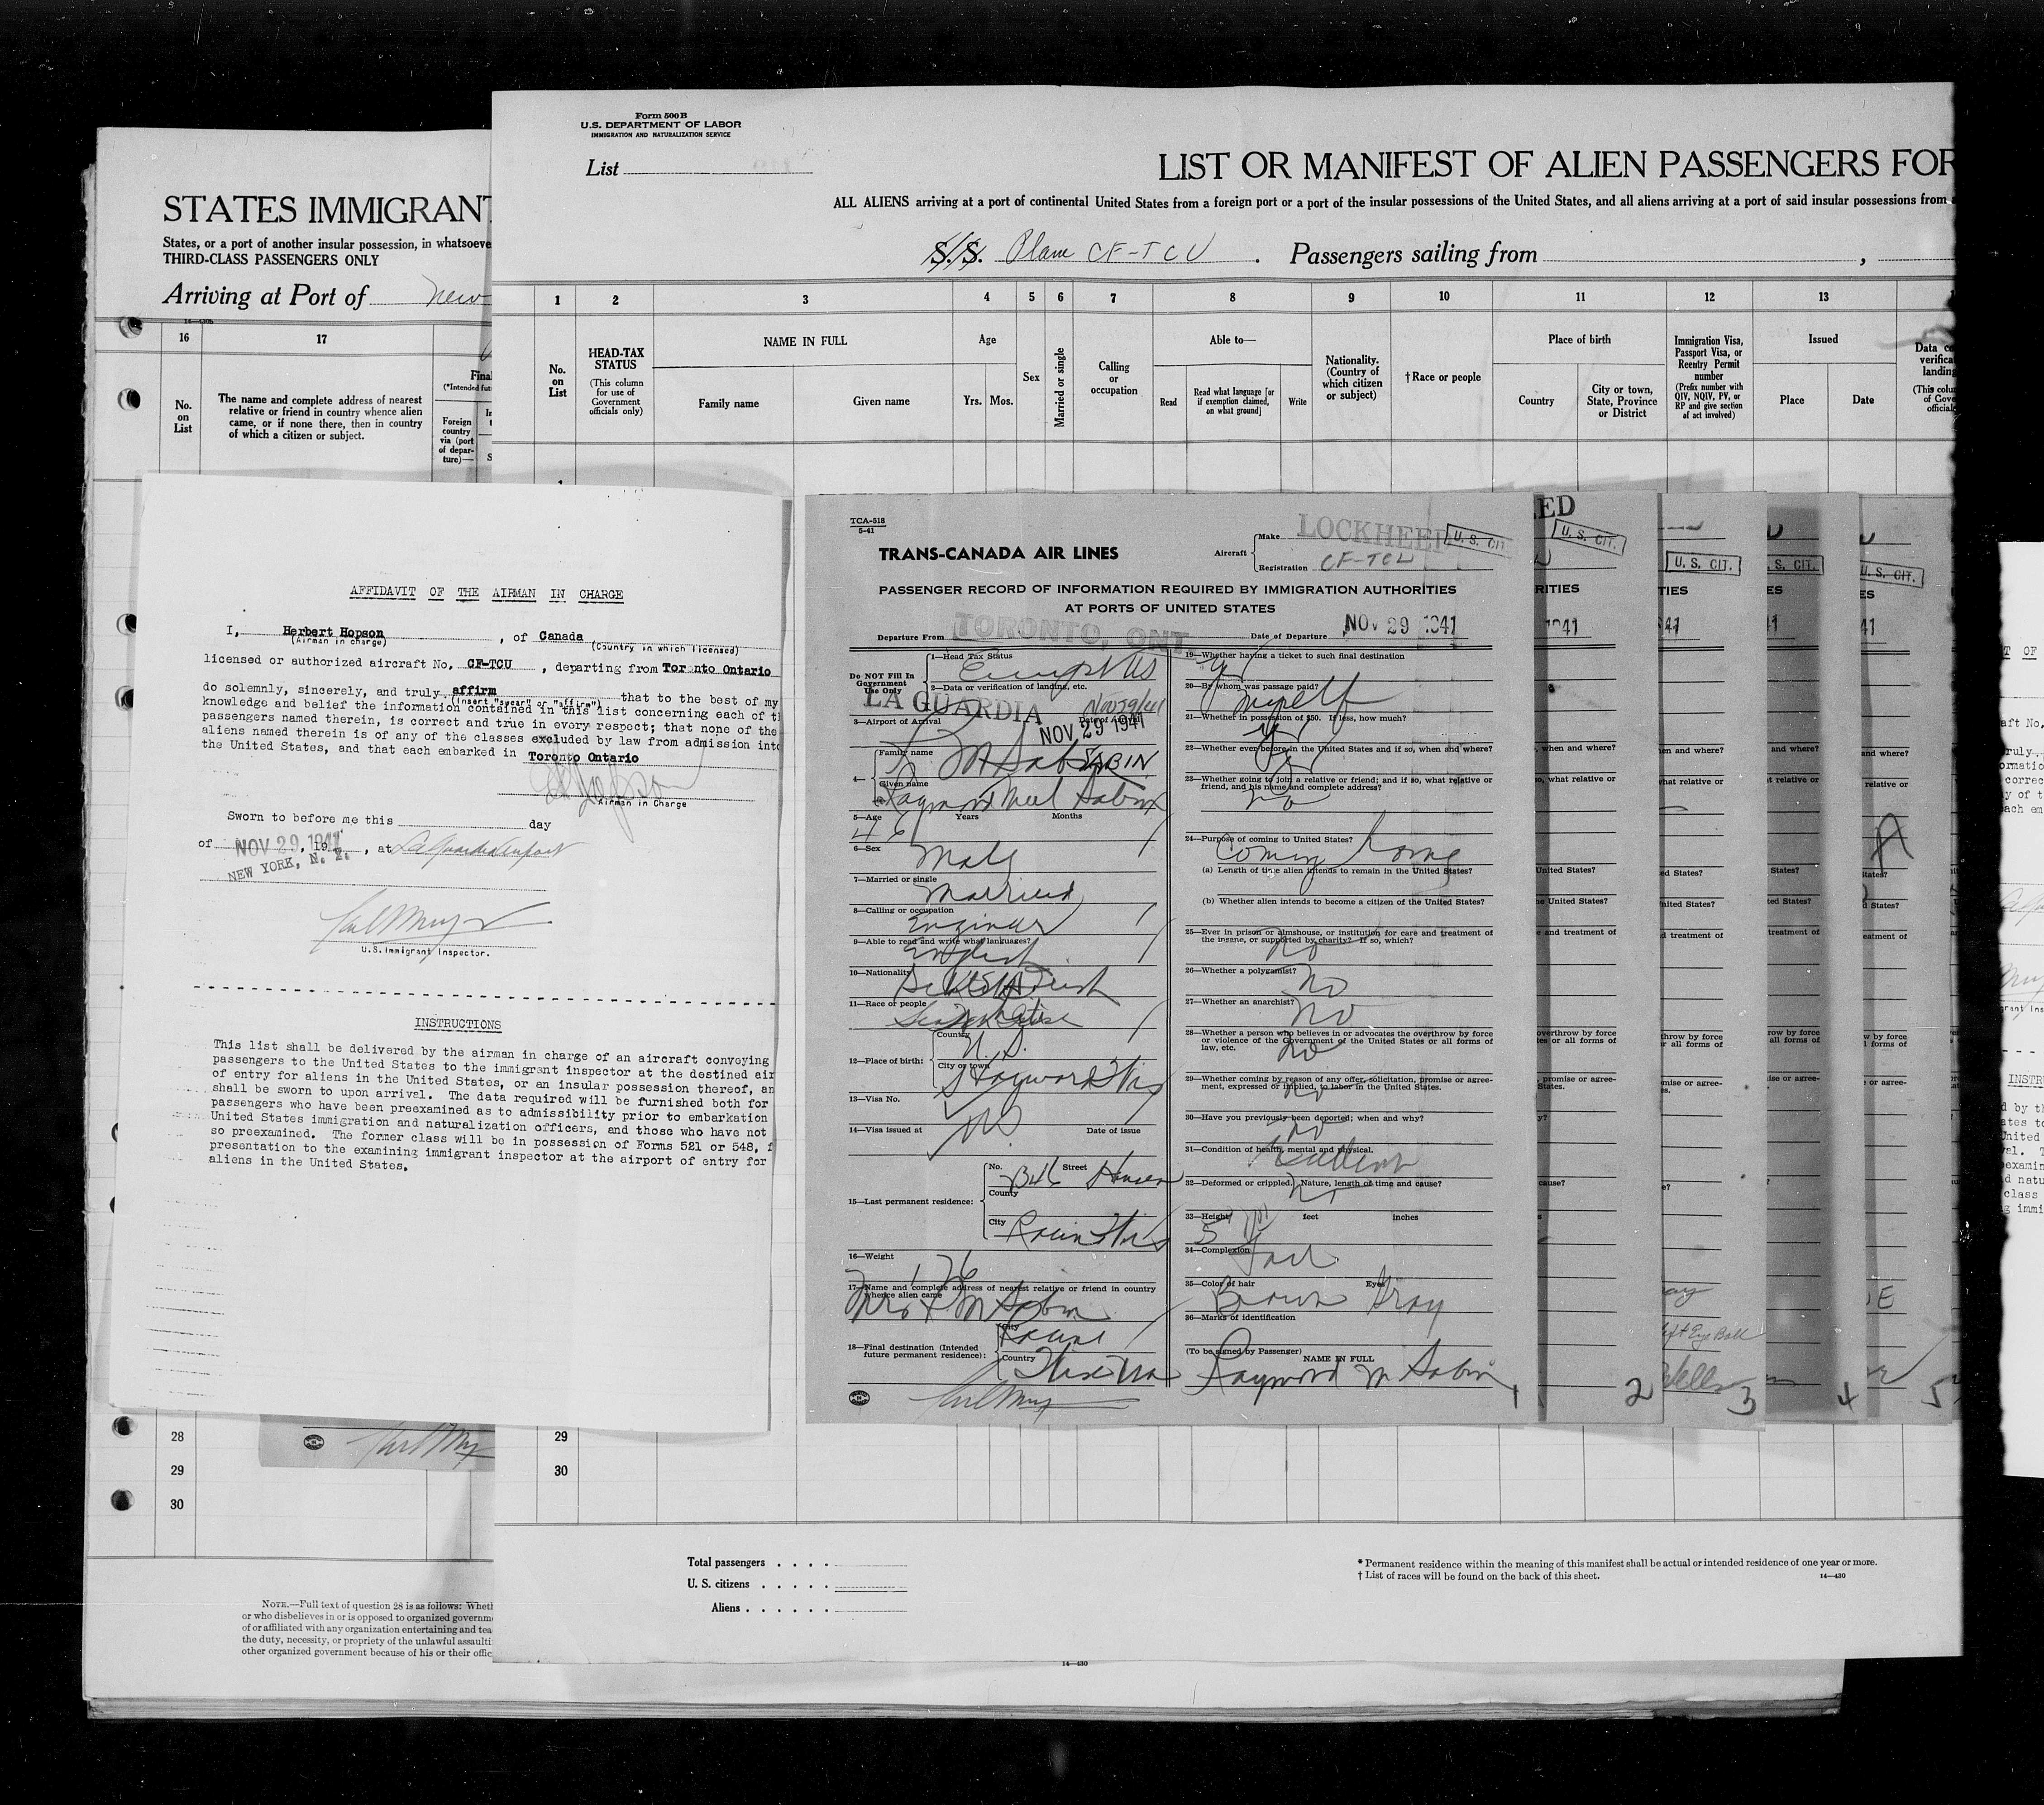 STATES IMMIGRANT
States, or a port of another insular possession, in whatsoeve
THIRD-CLASS PASSENGERS ONLY
Arriving at Port of New
16 17
No. on List
The name and complete address of nearest
relative or friend in country whence alien
came, or if none there, then in country
of which a citizen or subject.
Final
(*Intended fut
Foreign
country
via (port
of depar-
ture)—
28
29
30
NOTE.—Full text of question 28 is as follows: Wheth
or who disbelieves in or is opposed to organized governm
of or affiliated with any organization entertaining and tea
the duty, necessity, or propriety of the unlawful assaulti
other organized government because of his or their offic
Form 500 B
U.S. DEPARTMENT OF LABOR
IMMIGRATION AND NATURALIZATION SERVICE
List
LIST OR MANIFEST OF ALIEN PASSENGERS FOR
ALL ALIENS arriving at a port of continental United States from a foreign port or a port of the insular possessions of the United States, and all aliens arriving at a port of said insular possessions from a
S.S. Plane CF-TCU . Passengers sailing from ,
1 2 3 4 5 6 7 8 9 10 11 12 13
No. on List
HEAD-TAX STATUS
(This column for use of Government officials only)
NAME IN FULL
Family name Given name
Age
Yrs. Mos.
Sex
Married or single
Calling or occupation
Able to—
Read
Read what language [or if exemption claimed, on what ground]
Write
Nationality. (Country of which citizen or subject)
†Race or people
Place of birth
Country
City or town, State, Province or District
Immigration Visa, Passport Visa, or Reentry Permit number
(Prefix number with QIV, NQIV, PV, or RP and give section of act involved)
Issued
Place Date
29
30
Total passengers . . . .
U. S. citizens . . . . .
Aliens . . . . . .
* Permanent residence within the meaning of this manifest shall be actual or intended residence of one year or more.
† List of races will be found on the back of this sheet.
14—430
14—430
AFFIDAVIT OF THE AIRMAN IN CHARGE
I, Herbert Hopson , of Canada
(Airman in charge) (Country in which licensed)
licensed or authorized aircraft No. CF-TCU , departing from Toronto Ontario
do solemnly, sincerely, and truly affirm that to the best of my
(Insert "swear" or "affirm")
knowledge and belief the information contained in this list concerning each of t
passengers named therein, is correct and true in every respect; that none of the
aliens named therein is of any of the classes excluded by law from admission into
the United States, and that each embarked in Toronto Ontario
Airman in Charge
Sworn to before me this day
of NOV 29 1941, 19 , at LaGuardia Airport
NEW YORK, N. Y.
U.S. Immigrant Inspector.
INSTRUCTIONS
This list shall be delivered by the airman in charge of an aircraft conveying
passengers to the United States to the immigrant inspector at the destined air
of entry for aliens in the United States, or an insular possession thereof, an
shall be sworn to upon arrival. The data required will be furnished both for
passengers who have been preexamined as to admissibility prior to embarkation
United States immigration and naturalization officers, and those who have not
so preexamined. The former class will be in possession of Forms 521 or 548, f
presentation to the examining immigrant inspector at the airport of entry for
aliens in the United States.
TCA-518
5-41
TRANS-CANADA AIR LINES
Aircraft
Make LOCKHEED
Registration CF-TCU
U. S. CIT.
PASSENGER RECORD OF INFORMATION REQUIRED BY IMMIGRATION AUTHORITIES
AT PORTS OF UNITED STATES
Departure From TORONTO, ONT Date of Departure NOV 29 1941
Do NOT Fill In
Government
Use Only
1—Head Tax Status
2—Data or verification of landing, etc.
LA GUARDIA Nov 29/41
3—Airport of Arrival Date of Arrival
NOV 29 1941
4—
Family name SABIN
Given name Raymond Neel Sabin
5—Age Years Months
46
6—Sex Male
7—Married or single Married
8—Calling or occupation Engineer
9—Able to read and write what languages? English
10—Nationality
11—Race of people
12—Place of birth:
Country U. S.
City or town Hayward Wis
13—Visa No.
14—Visa issued at Date of issue
No
15—Last permanent residence:
No. Street
County
City Racine Wis
16—Weight 176
17—Name and complete address of nearest relative or friend in country
whence alien came
Mrs R M Sabin
18—Final destination (Intended
future permanent residence):
City Racine
Country
19—Whether having a ticket to such final destination
20—By whom was passage paid?
Myself
21—Whether in possession of $50. If less, how much?
22—Whether ever before in the United States and if so, when and where?
23—Whether going to join a relative or friend; and if so, what relative or
friend, and his name and complete address?
No
24—Purpose of coming to United States?
Coming home
(a) Length of time alien intends to remain in the United States?
(b) Whether alien intends to become a citizen of the United States?
25—Ever in prison or almshouse, or institution for care and treatment of
the insane, or supported by charity? If so, which?
No
26—Whether a polygamist?
No
27—Whether an anarchist?
No
28—Whether a person who believes in or advocates the overthrow by force
or violence of the Government of the United States or all forms of
law, etc.
No
29—Whether coming by reason of any offer, solicitation, promise or agree-
ment, expressed or implied, to labor in the United States.
No
30—Have you previously been deported; when and why?
No
31—Condition of health, mental and physical.
Excellent
32—Deformed or crippled. Nature, length of time and cause?
No
33—Height feet inches
34—Complexion
Fair
35—Color of hair Eyes
Brown Gray
36—Marks of identification
(To be signed by Passenger) NAME IN FULL
Raymond M Sabin
1
U. S. CIT.
2
U. S. CIT.
Left Eye Ball
Wells
3
S. CIT.
4
U. S. CIT.
5